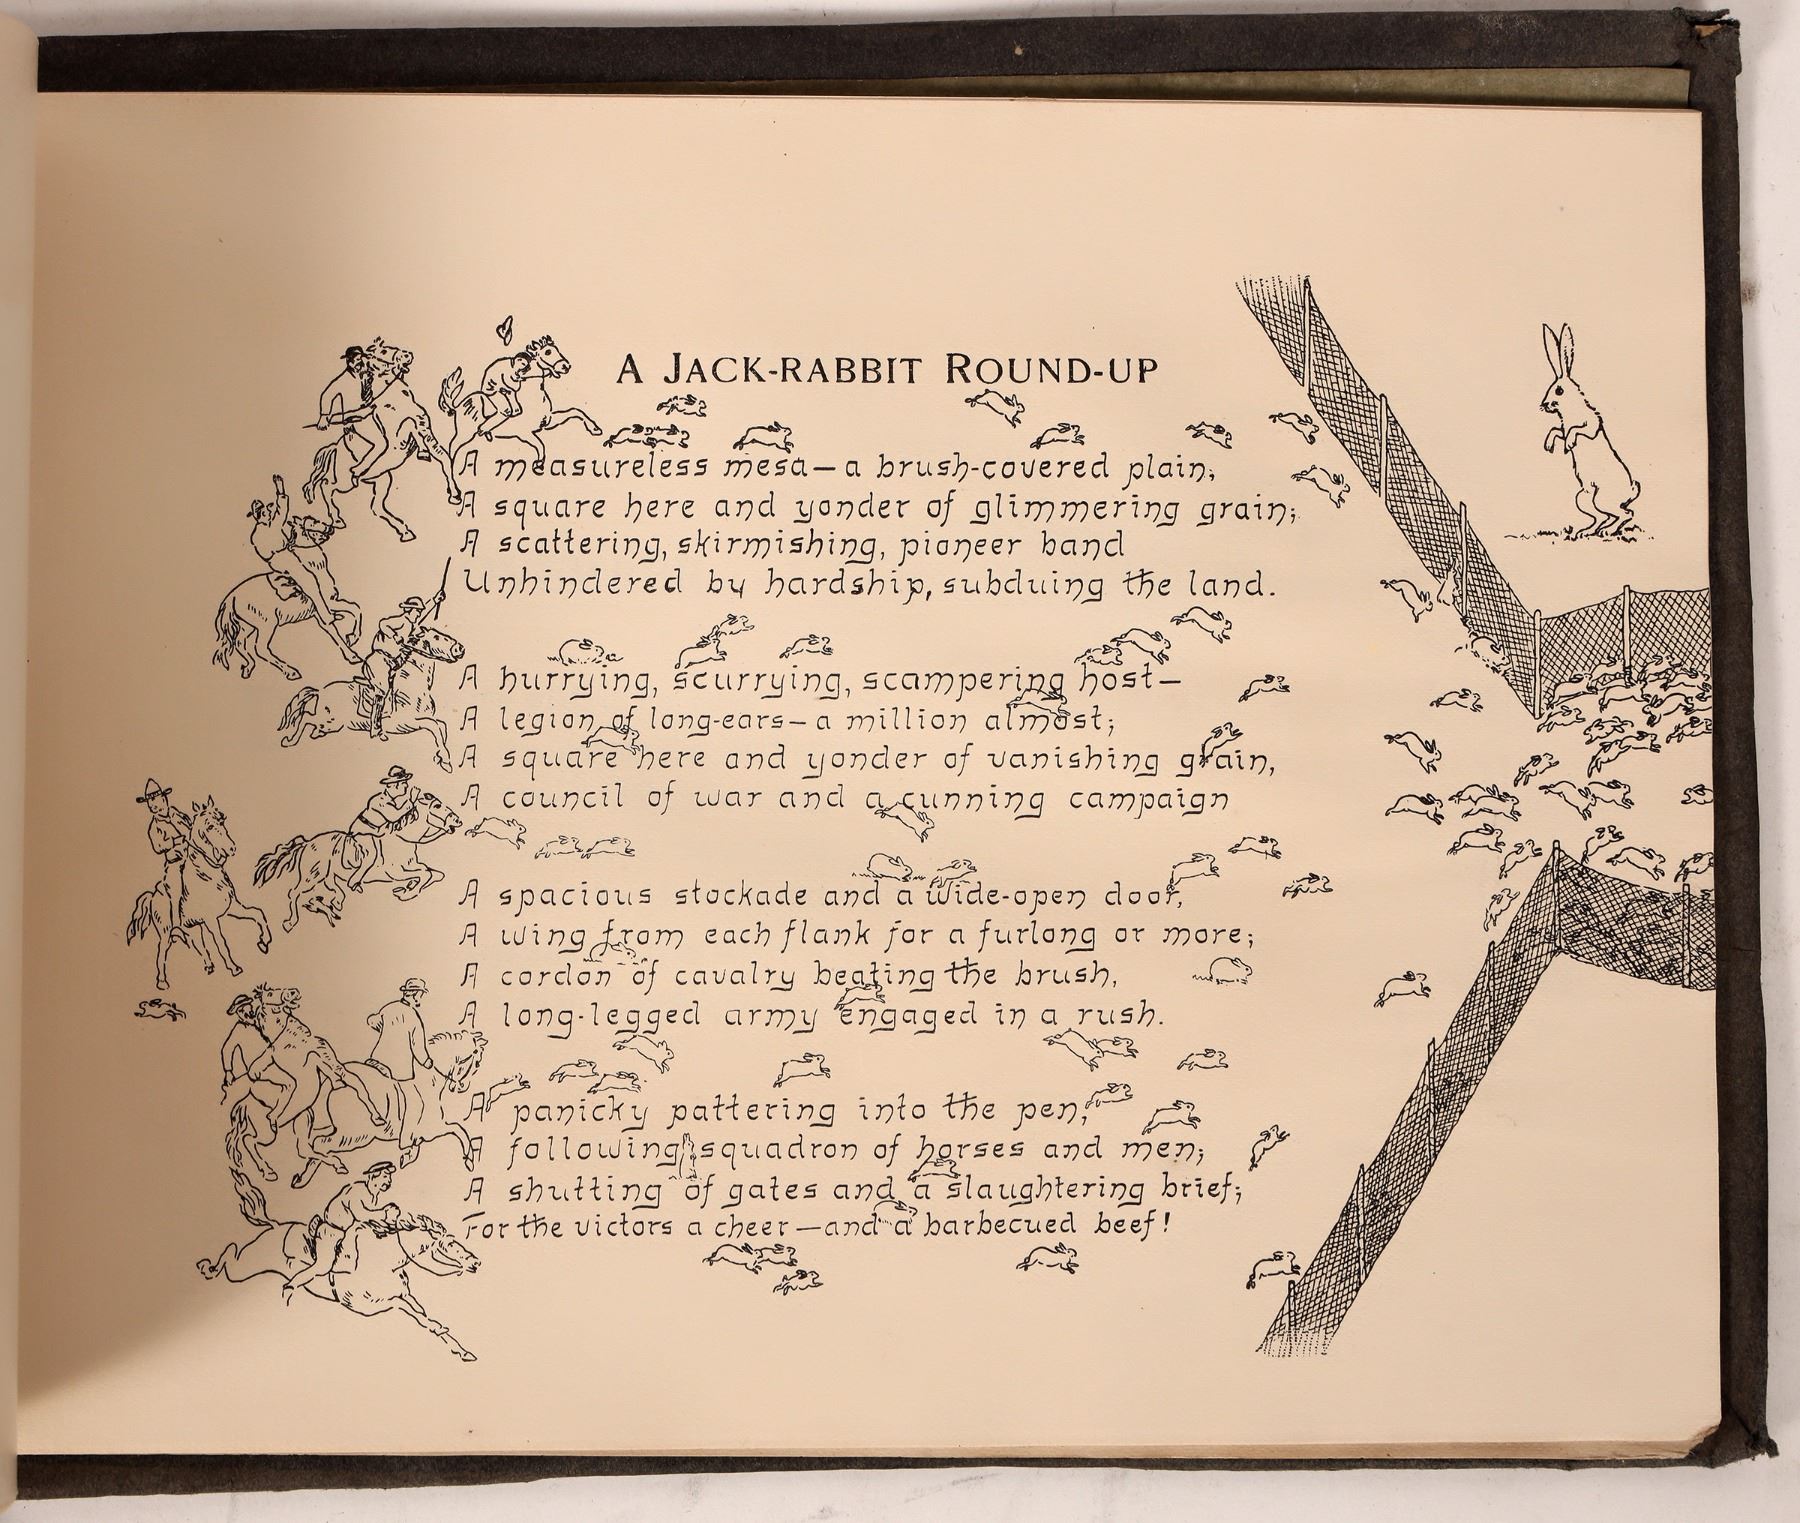 A JACK-RABBIT ROUND-UP
A measureless mesa—a brush-covered plain;
A square here and yonder of glimmering grain;
A scattering, skirmishing, pioneer band
Unhindered by hardship, subduing the land.
A hurrying, scurrying, scampering host—
A legion of long-ears—a million almost;
A square here and yonder of vanishing grain,
A council of war and a cunning campaign
A spacious stockade and a wide-open door,
A wing from each flank for a furlong or more;
A cordon of cavalry beating the brush,
A long-legged army engaged in a rush.
A panicky pattering into the pen,
A following squadron of horses and men;
A shutting of gates and a slaughtering brief;
For the victors a cheer—and a barbecued beef!